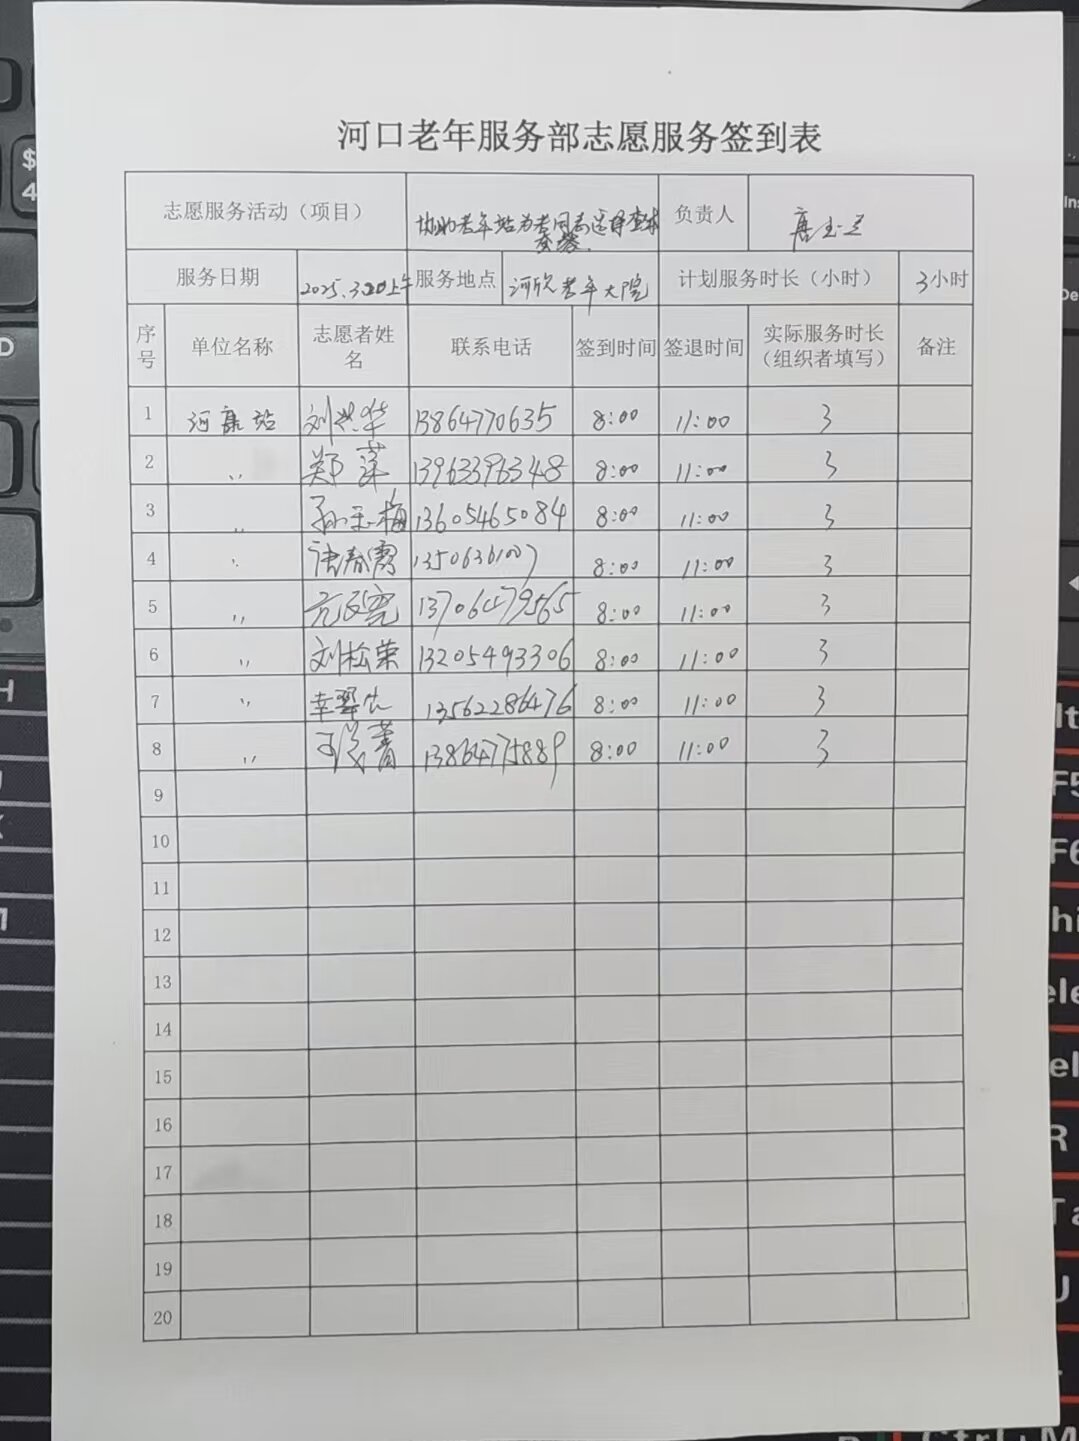 河口老年服务部志愿服务签到表
志愿服务活动（项目） 协助老年站为老同志选择查体套餐. 负责人 唐玉兰
服务日期 2025.3.20上午 服务地点 河欣老年大院 计划服务时长（小时） 3小时
序号 单位名称 志愿者姓名 联系电话 签到时间 签退时间 实际服务时长（组织者填写） 备注
1 河康站 刘洪华 13864770635 8:00 11:00 3
2 〃 郑萍 13963396348 8:00 11:00 3
3 〃 孙玉梅 13605465084 8:00 11:00 3
4 〃 唐春霞 8:00 11:00 3
5 〃 13706479565 8:00 11:00 3
6 〃 刘松荣 13205493306 8:00 11:00 3
7 〃 13562286476 8:00 11:00 3
8 〃 13864775889 8:00 11:00 3
9
10
11
12
13
14
15
16
17
18
19
20